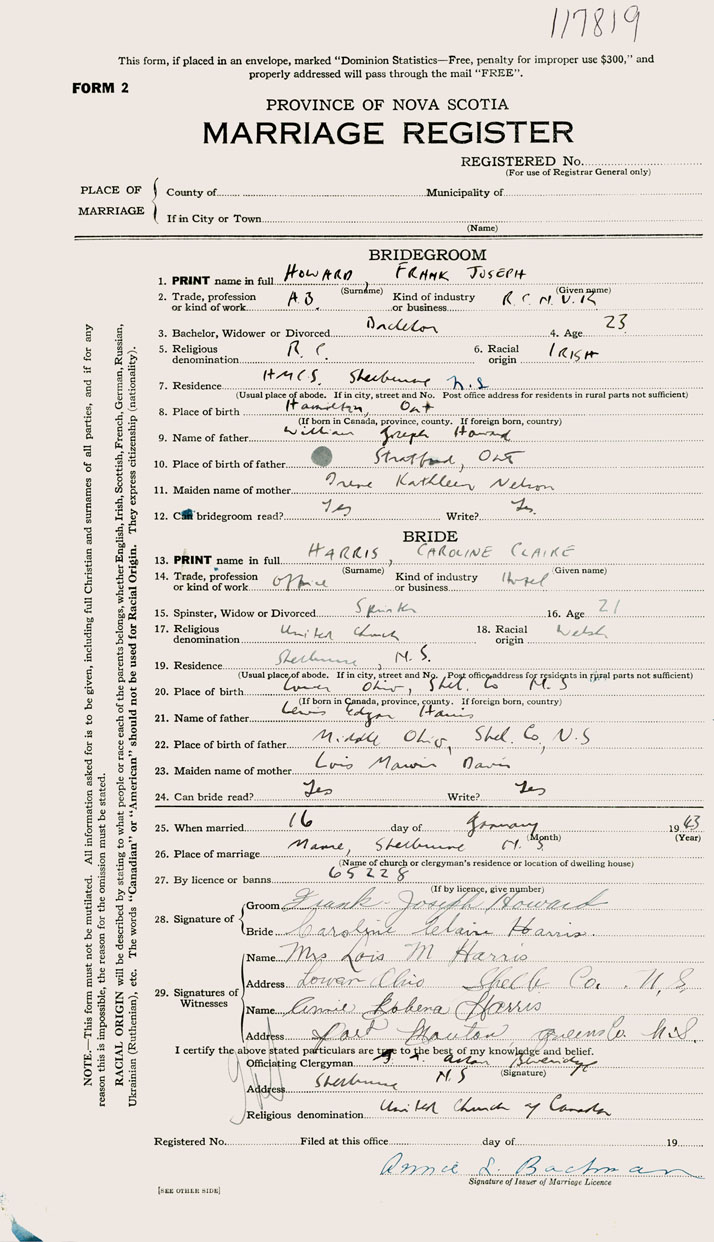 117819
This form, if placed in an envelope, marked "Dominion Statistics—Free, penalty for improper use $300," and
properly addressed will pass through the mail "FREE".
FORM 2
PROVINCE OF NOVA SCOTIA
MARRIAGE REGISTER
REGISTERED No.
(For use of Registrar General only)
PLACE OF MARRIAGE
County of Municipality of
If in City or Town
(Name)
BRIDEGROOM
1. PRINT name in full HOWARD, FRANK JOSEPH
(Surname) (Given name)
2. Trade, profession or kind of work A.B. Kind of industry or business R.C.N.V.R
3. Bachelor, Widower or Divorced Bachelor 4. Age 23
5. Religious denomination R.C. 6. Racial origin IRISH
7. Residence H.M.C.S. Shelburne N.S
(Usual place of abode. If in city, street and No. Post office address for residents in rural parts not sufficient)
8. Place of birth Hamilton, Ont
(If born in Canada, province, county. If foreign born, country)
9. Name of father William Joseph Howard
10. Place of birth of father Stratford, Ont
11. Maiden name of mother Irene Kathleen Nelson
12. Can bridegroom read? Yes Write? Yes.
BRIDE
13. PRINT name in full HARRIS, CAROLINE CLAIRE
(Surname) (Given name)
14. Trade, profession or kind of work Office Kind of industry or business Hotel
15. Spinster, Widow or Divorced Spinster 16. Age 21
17. Religious denomination United Church 18. Racial origin Welsh
19. Residence Shelburne, N.S.
(Usual place of abode. If in city, street and No. Post office address for residents in rural parts not sufficient)
20. Place of birth Lower Ohio, Shel. Co N.S
(If born in Canada, province, county. If foreign born, country)
21. Name of father Lewis Edgar Harris
22. Place of birth of father Middle Ohio, Shel. Co, N.S
23. Maiden name of mother Lois Davis
24. Can bride read? Yes Write? Yes
25. When married 16 day of January 1943
(Month) (Year)
26. Place of marriage Manse, Shelburne N.S.
(Name of church or clergyman's residence or location of dwelling house)
27. By licence or banns 65228
(If by licence, give number)
28. Signature of
Groom Frank Joseph Howard
Bride Caroline Claire Harris.
29. Signatures of Witnesses
Name Mrs Lois M Harris
Address Lower Ohio Shelb Co. N.S
Name Robena Harris
Address Port Mouton, Queens Co. N.S.
I certify the above stated particulars are true to the best of my knowledge and belief.
Officiating Clergyman
(Signature)
Address Shelburne N.S
Religious denomination United Church of Canada
Registered No. Filed at this office day of 19
Annie L. Bachman
Signature of Issuer of Marriage Licence
[SEE OTHER SIDE]
NOTE.—This form must not be mutilated. All information asked for is to be given, including full Christian and surnames of all parties, and if for any
reason this is impossible, the reason for the omission must be stated.
RACIAL ORIGIN will be described by stating to what people or race each of the parents belongs, whether English, Irish, Scottish, French, German, Russian,
Ukrainian (Ruthenian), etc. The words "Canadian" or "American" should not be used for Racial Origin. They express citizenship (nationality).